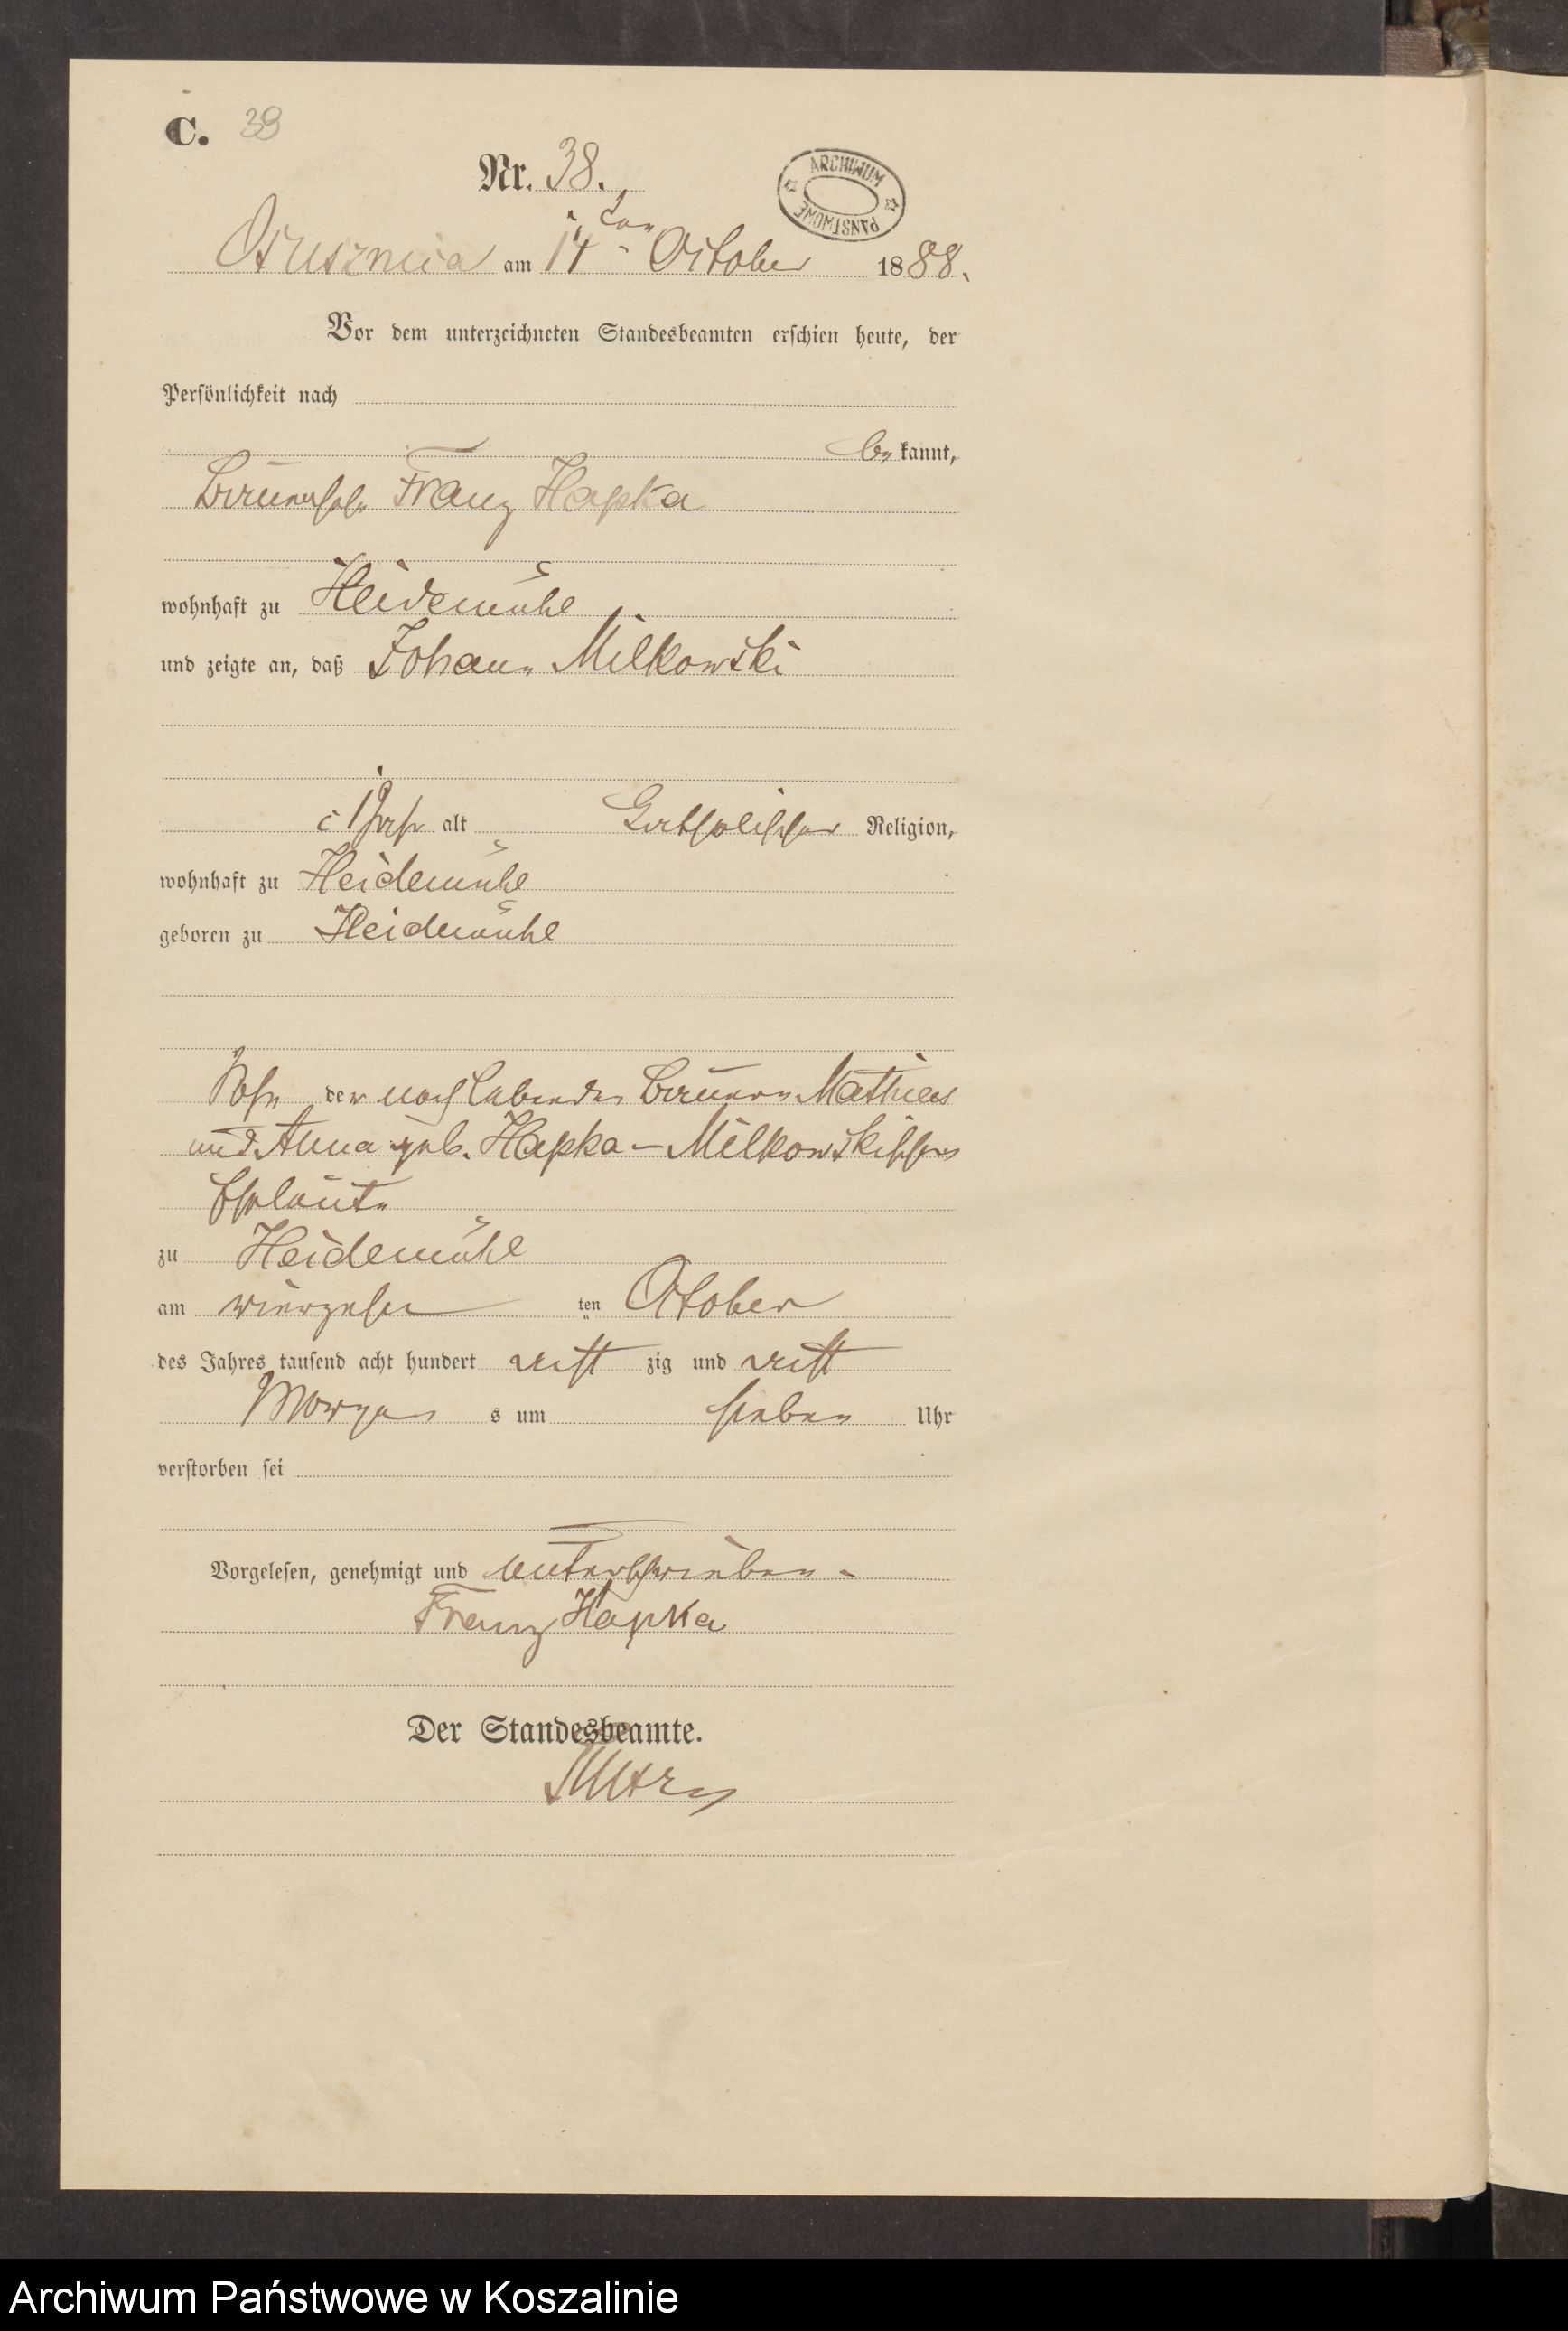 C. 39
Nr. 38.
ARCHIWUM PAŃSTWOWE
Ossusznica am 14ten October 1888.
Vor dem unterzeichneten Standesbeamten erschien heute, der
Persönlichkeit nach
bekannt,
Bauersohn Franz Hapka
wohnhaft zu Heidemühl
und zeigte an, daß Johann Milkowski
1 Jahr alt Katholischer Religion,
wohnhaft zu Heidemühl
geboren zu Heidemühl
Sohn der noch lebenden Bauern Mathias
und Anna geb. Hapka – Milkowskischen
Eheleute
zu Heidemühl
am vierzehn ten October
des Jahres tausend acht hundert acht zig und acht
Morgens um sieben Uhr
verstorben sei
Vorgelesen, genehmigt und unterschrieben
Franz Hapka
Der Standesbeamte.
Archiwum Państwowe w Koszalinie